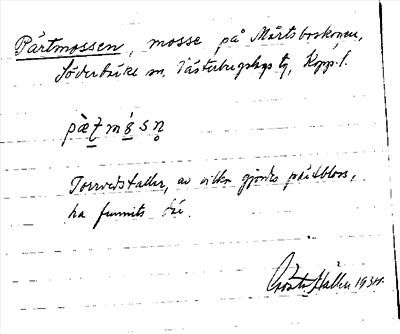 Pärtmossen, mosse på Mårtsboskogen,
Söderbärke sn, Västerbergslags tg, Kopp. l.
pæ̀ʈmósn̥
Torrvedstallar, av vilka gjordes pärtbloss,
ha funnits där.
Gösta Hallen 1934.